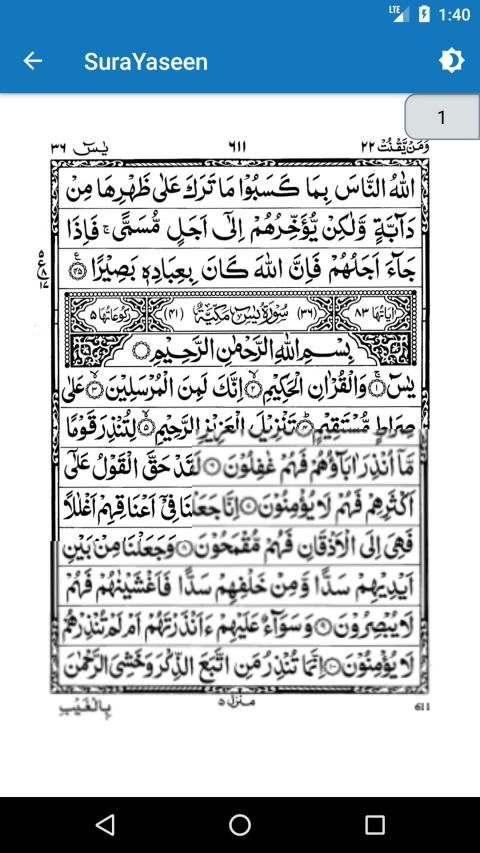 LTE 1:40
SuraYaseen
1
وَمَنْ يَّقْنُتْ ٢٢ ٦١١ يٰسٓ ٣٦
اللّٰهُ النَّاسَ بِمَا كَسَبُوْا مَا تَرَكَ عَلٰى ظَهْرِهَا مِنْ
دَآبَّةٍ وَّلٰكِنْ يُّؤَخِّرُهُمْ اِلٰٓى اَجَلٍ مُّسَمًّى ۚ فَاِذَا
جَآءَ اَجَلُهُمْ فَاِنَّ اللّٰهَ كَانَ بِعِبَادِهٖ بَصِيْرًا ﴿٤٥﴾
اٰيَاتُهَا ٨٣ (٣٦) سُوْرَةُ يٰسٓ مَكِّيَّةٌ (٤١) رُكُوْعَاتُهَا ٥
بِسْمِ اللّٰهِ الرَّحْمٰنِ الرَّحِيْمِ
يٰسٓ ﴿١﴾ وَالْقُرْاٰنِ الْحَكِيْمِ ﴿٢﴾ اِنَّكَ لَمِنَ الْمُرْسَلِيْنَ ﴿٣﴾ عَلٰى
صِرَاطٍ مُّسْتَقِيْمٍ ﴿٤﴾ تَنْزِيْلَ الْعَزِيْزِ الرَّحِيْمِ ﴿٥﴾ لِتُنْذِرَ قَوْمًا
مَّآ اُنْذِرَ اٰبَآؤُهُمْ فَهُمْ غٰفِلُوْنَ ﴿٦﴾ لَقَدْ حَقَّ الْقَوْلُ عَلٰٓى
اَكْثَرِهِمْ فَهُمْ لَا يُؤْمِنُوْنَ ﴿٧﴾ اِنَّا جَعَلْنَا فِيْٓ اَعْنَاقِهِمْ اَغْلٰلًا
فَهِيَ اِلَى الْاَذْقَانِ فَهُمْ مُّقْمَحُوْنَ ﴿٨﴾ وَجَعَلْنَا مِنْۢ بَيْنِ
اَيْدِيْهِمْ سَدًّا وَّمِنْ خَلْفِهِمْ سَدًّا فَاَغْشَيْنٰهُمْ فَهُمْ
لَا يُبْصِرُوْنَ ﴿٩﴾ وَسَوَآءٌ عَلَيْهِمْ ءَاَنْذَرْتَهُمْ اَمْ لَمْ تُنْذِرْهُمْ
لَا يُؤْمِنُوْنَ ﴿١٠﴾ اِنَّمَا تُنْذِرُ مَنِ اتَّبَعَ الذِّكْرَ وَخَشِيَ الرَّحْمٰنَ
بِالْغَيْبِ منزل ٥ 611